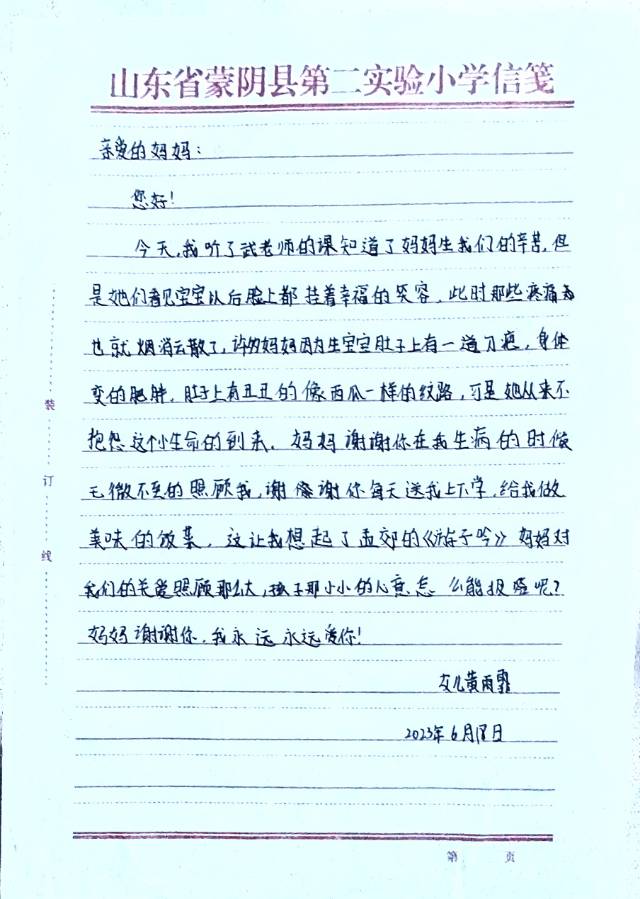 山东省蒙阴县第二实验小学信笺
亲爱的妈妈：
您好！
今天，我听了武老师的课知道了妈妈生我们的辛苦，但
是她们看见宝宝以后脸上都挂着幸福的笑容，此时那些疼痛
也就烟消云散了，许多妈妈因为生宝宝肚子上有一道刀疤，身体
变的肥胖，肚子上有丑丑的像西瓜一样的纹路，可是她从来不
抱怨这个小生命的到来。妈妈谢谢你在我生病的时候
无微不至的照顾我，谢谢你每天送我上下学，给我做
美味的饭菜，这让我想起了孟郊的《游子吟》妈妈对
我们的关爱照顾那么大，孩子那小小的心意怎么能报答呢？
妈妈谢谢你，我永远永远爱你！
女儿黄雨霏
2023年6月18日
装
订
线
第 页